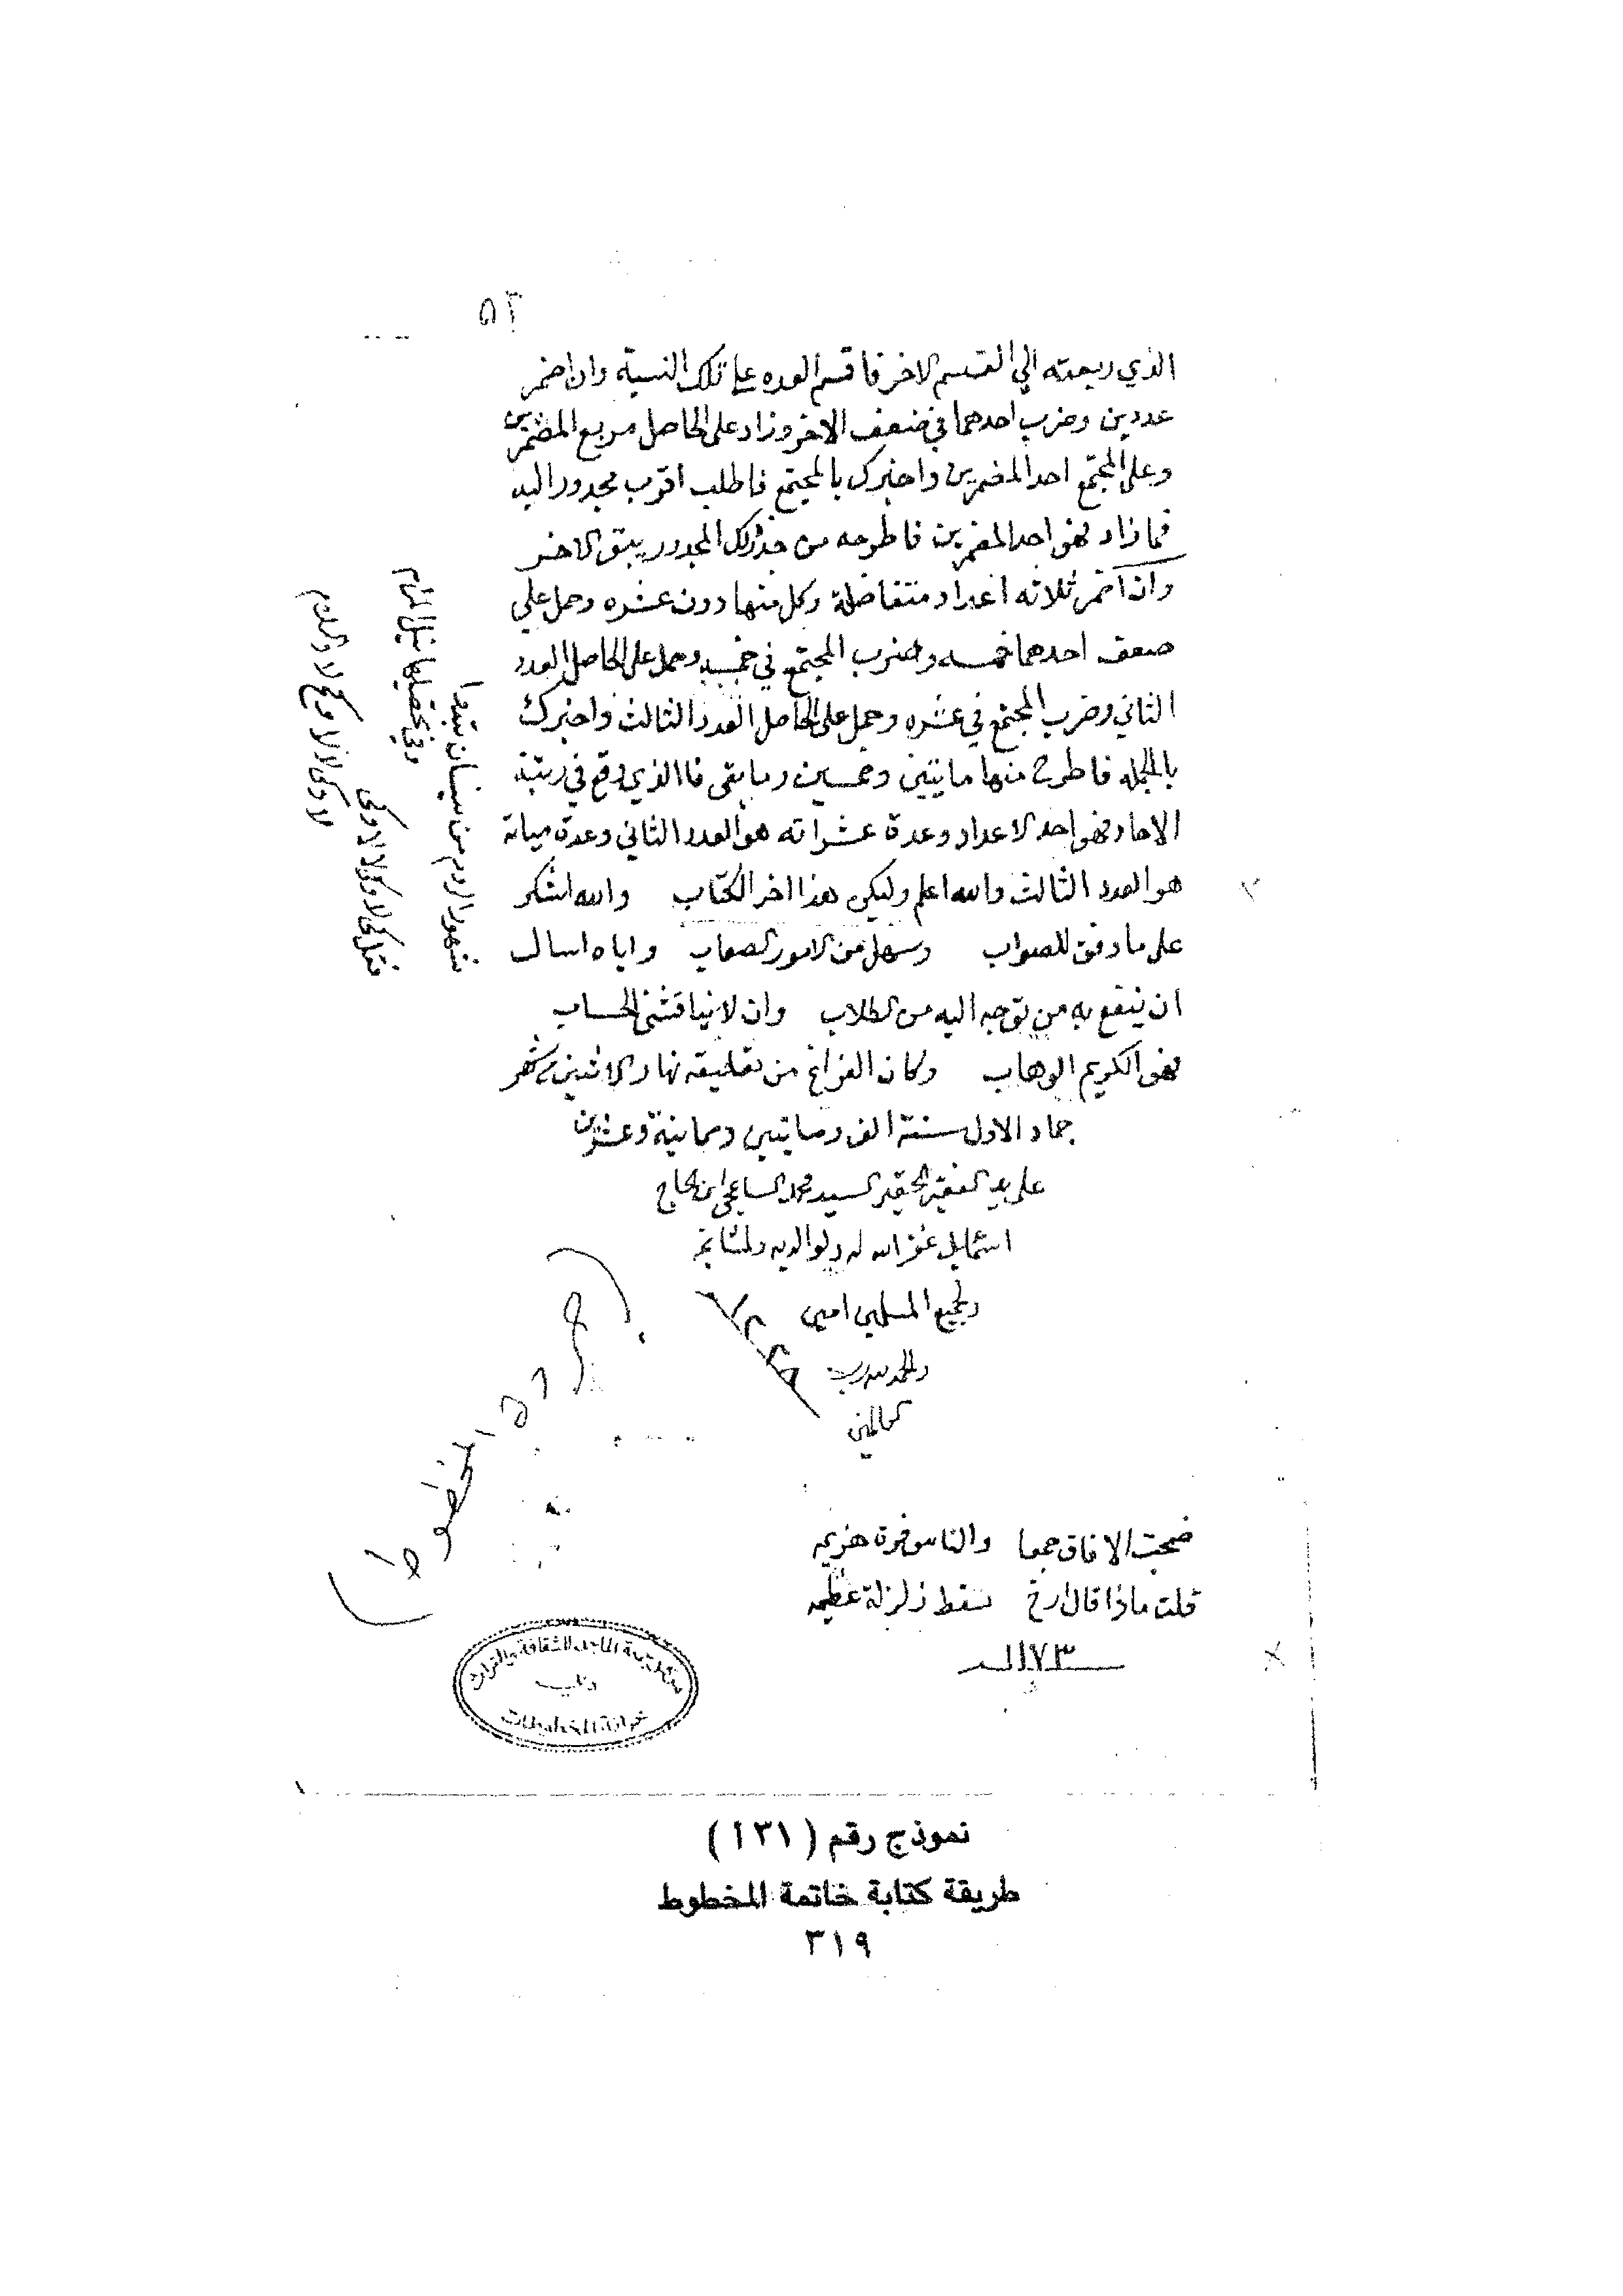 ٥٣
الذي ربعته الي القسم الاخر فاقسم العده علي تلك النسبة وان اضمر
عددين وضرب احدهما في ضعف الاخر وزاد على الحاصل مربع المضمرين
وعلى المجتمع احد المضمرين واخبرك بالمجتمع فاطلب اقرب مجدور اليه
فما زاد فهو احد المضمرين فاطرحه من جذر ذلك المجدور يبقى الاخر
وان اضمر ثلاثه اعداد متفاضلة وكل منها دون عشره وحمل علي
ضعف احدهما خمسه وضرب المجتمع في خمسه وحمل على الحاصل العدد
الثاني وضرب المجتمع في عشره وحمل على الحاصل العدد الثالث واخبرك
بالجمله فاطرح منها مايتين وخمسين وما بقى فاالذي وقع في رتبة
الاحاد فهو احد الاعداد وعدة عشراته هو العدد الثاني وعدة مياته
هو العدد الثالث والله اعلم وليكن هذا اخر الكتاب والله اشكر
على ما وفق للصواب وسهل من الامور الصعاب واياه اسال
ان ينفع به من توجه اليه من الطلاب وان لا يناقشني الحساب
فهو الكريم الوهاب وكان الفراغ من تعليقه نهار الاثنين شهر
جماد الاول سنة الف ومايتين وثمانية وعشرين
على يد الفقير الحقير السيد محمد الساعي ابن الحاج
اسماعيل غفر الله له ولوالديه ولمشايخه
ولجميع المسلمين امين
والحمد لله رب
العالمين
١٢٢٨
شهور الروم من نيسان تبتدا
وفي تحصيلها نيل المرام
(صورة المخطوط)
ضجت الافاق جمعا والناس فرة هزيمه
قلت ماذا قال ارخ سقط زلزلة عظيمه
سنة ١١٧٣
مركز جمعة الماجد للثقافة والتراث
دبي
خزانة المخطوطات
نموذج رقم (١٣١)
طريقة كتابة خاتمة المخطوط
٣١٩